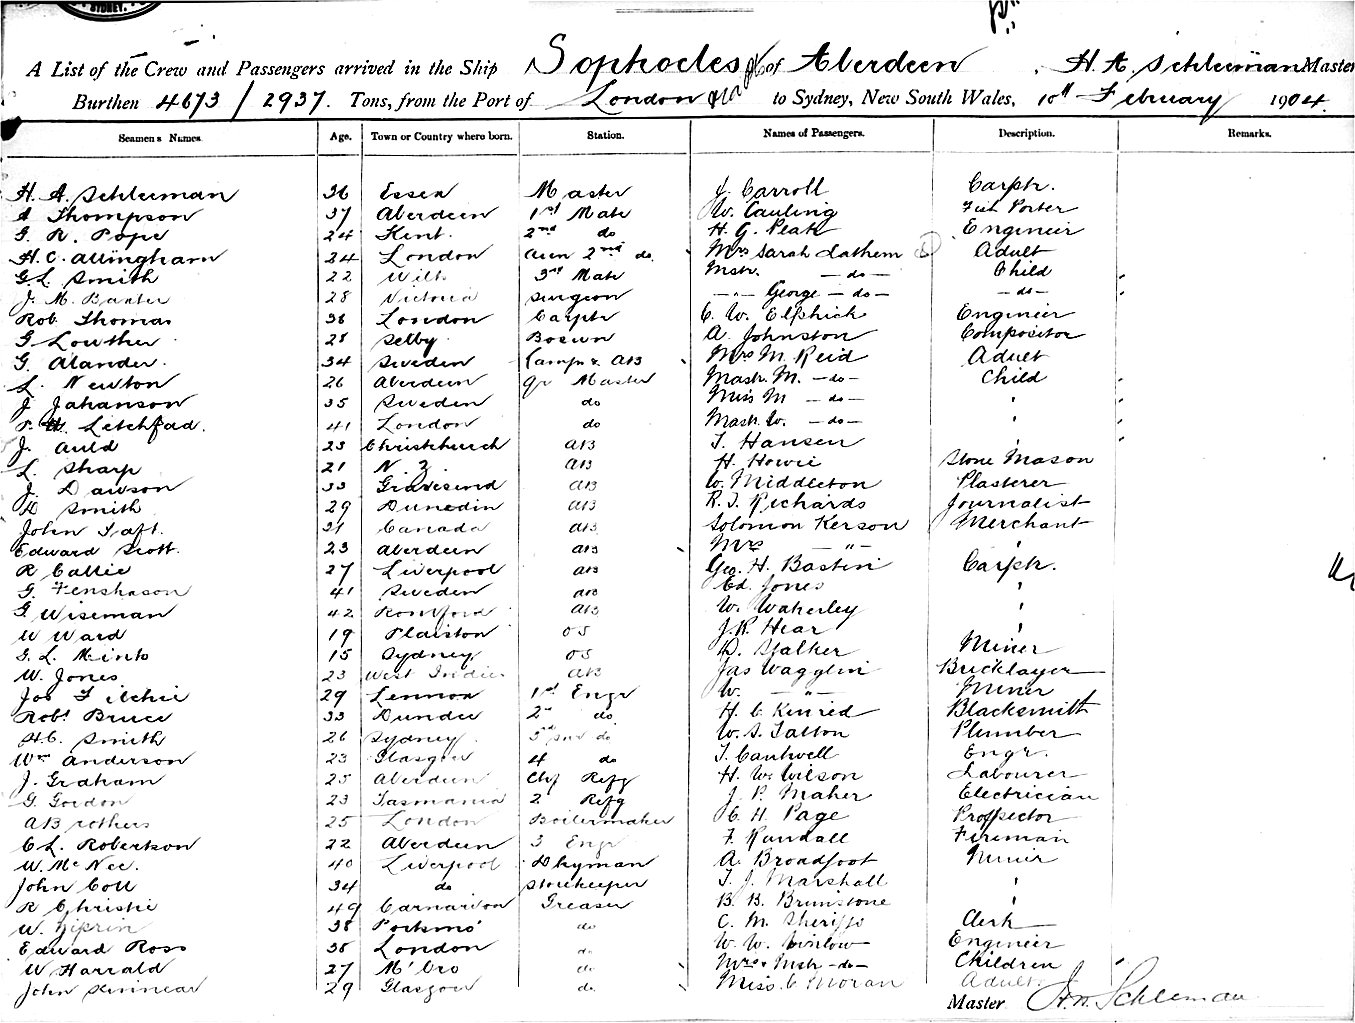 SYDNEY.
A List of the Crew and Passengers arrived in the Ship Sophocles of Aberdeen, H. A. Schleeman Master
Burthen 4673/2937. Tons, from the Port of London to Sydney, New South Wales, 10th February 1904.
Seamen's Names. Age. Town or Country where born. Station. Names of Passengers. Description. Remarks.
H. A. Schleeman 36 Essex Master J. Carroll Carptr.
A Thompson 37 Aberdeen 1st Mate W. Cauling Porter
G. R. Pope 24 Kent. 2nd do H. G. Peate Engineer
H. C. Allingham 24 London 2nd do Mrs Sarah Lathem Adult
G. L. Smith 22 Wilts 3rd Mate Mstr. - do - Child
J. M. Baxter 28 Victoria Surgeon - " - George - do - - do -
Rob. Thomas 38 London Carptr C. W. Elphick Engineer
G Lowther 28 Selby Bosun A. Johnston Compositor
G. Alander. 34 Sweden Lamps & AB Mrs M. Reid Adult
L. Newton 26 Aberdeen Qr Master Mastr. M. - do - Child
J Johanson 35 Sweden do Miss M - do - "
Letchfad. 41 London do Mastr. W. - do - "
J. Auld 23 Christchurch AB T. Hansen "
L. Sharp 21 N. Z. AB H. Howie Stone Mason
J. Dawson 33 Gravesend AB W. Middleton Plasterer
D Smith 29 Dunedin AB R. J. Richards Journalist
John Taft. 31 Canada AB Solomon Kerson Merchant
Edward Scott. 23 Aberdeen AB Mrs - " - "
R Cattie 27 Liverpool AB Geo. H. Bastin Carptr.
G. 41 Sweden AB Ed. Jones "
G Wiseman 42 Romford AB W. Wakerley "
W Ward 19 Plaistow OS J. R. Hear "
G. L. Minto 15 Sydney OS D. Stalker Miner
W. Jones 23 West Indies AB Jas Wagglin Bricklayer
Jos 29 Lennox 1st Engr W. - " - Miner
Robt Bruce 33 Dundee 2nd do H. C. Kinred Blacksmith
H. C. Smith 26 Sydney do W. S. Tatton Plumber
Wm Anderson 23 Glasgow 4 do T. Cantwell Engr.
J. Graham 25 Aberdeen Chf Refg H. W. Wilson Labourer
G. Gordon 23 Tasmania 2 Refg J. P. Maher Electrician
A Brothers 25 London Boilermaker C. H. Page Prospector
C. L. Robertson 22 Aberdeen 3 Engr F. Randall Fireman
W. McNee. 40 Liverpool Dkyman A. Broadfoot Miner
John Coll 34 do Storekeeper T. J. Marshall "
R Christie 49 Carnarvon Greaser B. B. Brimstone
W. 38 Portsmo' do C. M. Sheriffs Clerk
Edward Ross 38 London do W. W. Winlow Engineer
W Harrald 27 do Mrs & Mstr - do - Children
John 29 Glasgow do Miss C Moran Adult.
Master H. A. Schleeman